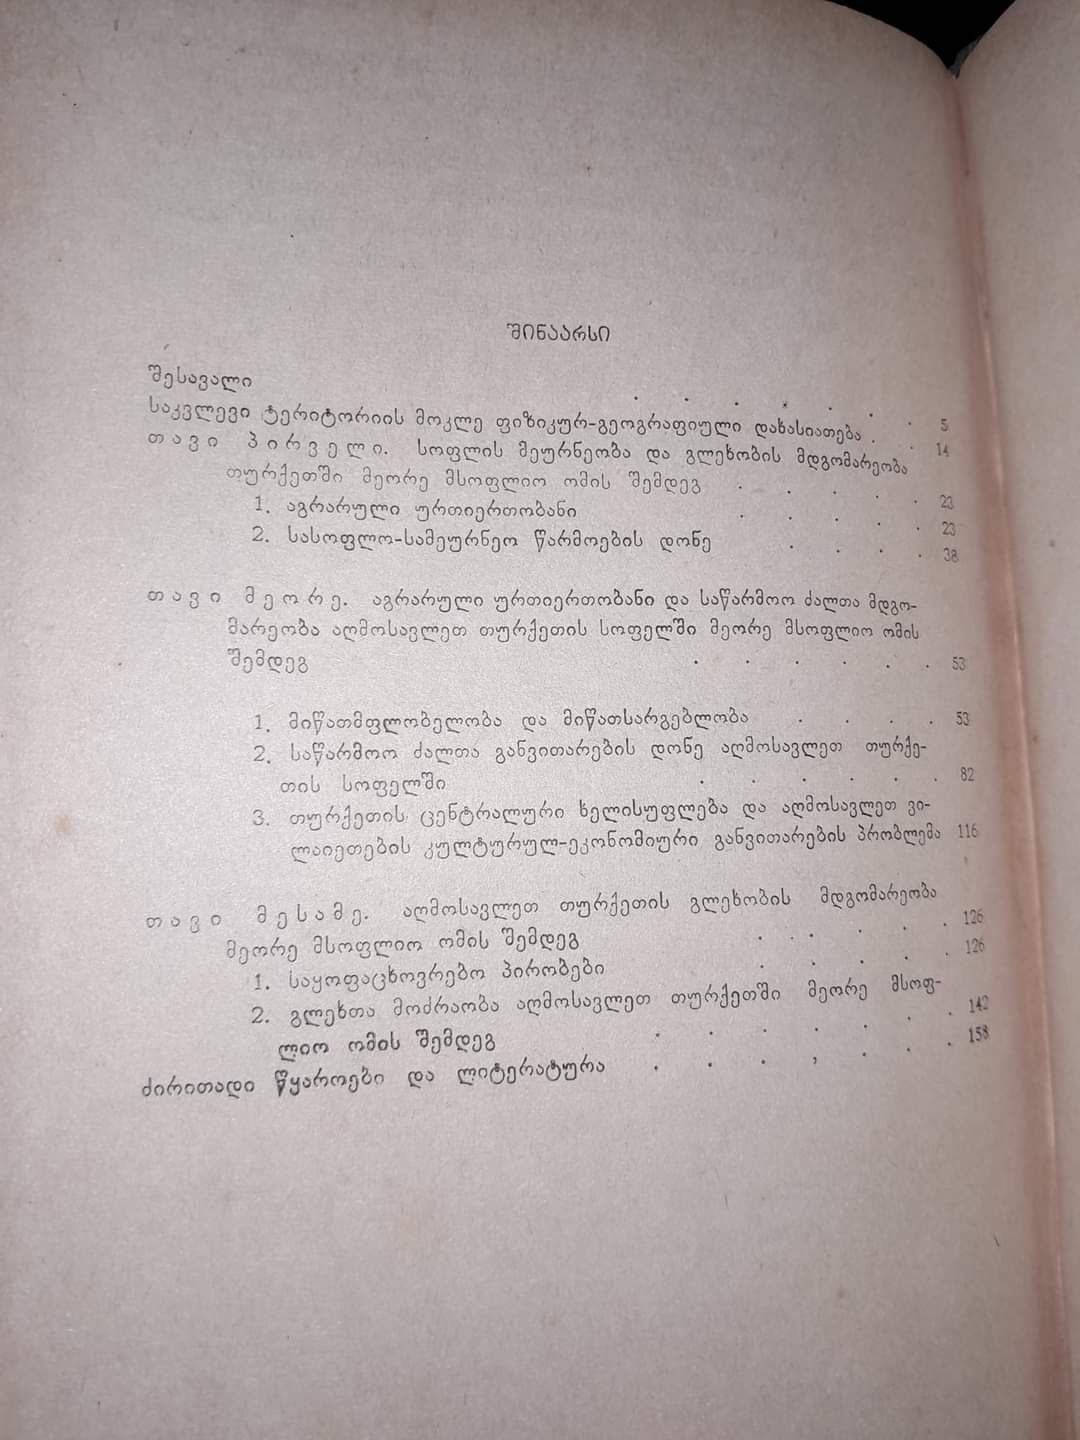 შინაარსი
შესავალი . . . . . . 5
საკვლევი ტერიტორიის მოკლე ფიზიკურ-გეოგრაფიული დახასიათება . . 14
თავი პირველი. სოფლის მეურნეობა და გლეხობის მდგომარეობა
თურქეთში მეორე მსოფლიო ომის შემდეგ . . . . . 23
1. აგრარული ურთიერთობანი . . . . . 23
2. სასოფლო-სამეურნეო წარმოების დონე . . . . 38
თავი მეორე. აგრარული ურთიერთობანი და საწარმოო ძალთა მდგო-
მარეობა აღმოსავლეთ თურქეთის სოფელში მეორე მსოფლიო ომის
შემდეგ . . . . . . 53
1. მიწათმფლობელობა და მიწათსარგებლობა . . . . 53
2. საწარმოო ძალთა განვითარების დონე აღმოსავლეთ თურქე-
თის სოფელში . . . . . . 82
3. თურქეთის ცენტრალური ხელისუფლება და აღმოსავლეთ ვი-
ლაიეთების კულტურულ-ეკონომიური განვითარების პრობლემა 116
თავი მესამე. აღმოსავლეთ თურქეთის გლეხობის მდგომარეობა
მეორე მსოფლიო ომის შემდეგ . . . . . . 126
1. საყოფაცხოვრებო პირობები . . . . . 126
2. გლეხთა მოძრაობა აღმოსავლეთ თურქეთში მეორე მსოფ-
ლიო ომის შემდეგ . . . . . . . 142
ძირითადი წყაროები და ლიტერატურა . . . , . . . 158